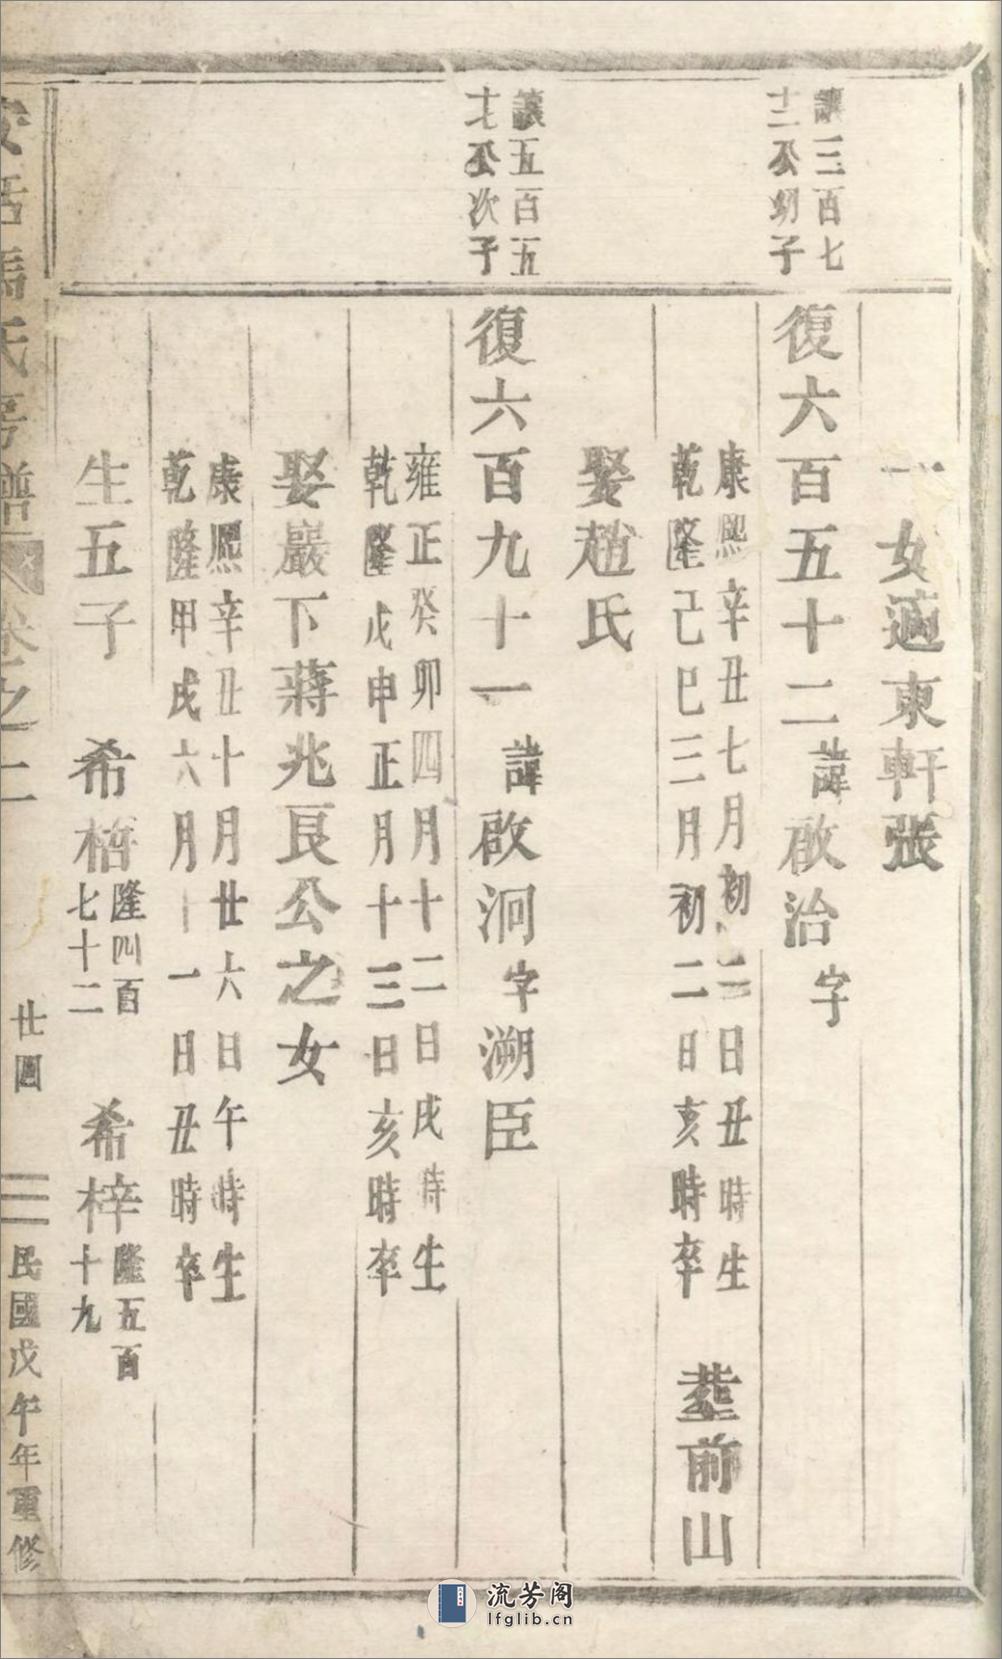 一女適東軒張
讓三百七
十二公幼子
復六百五十二 諱啟治 字
康熙辛丑七月初二日丑時生
乾隆己巳三月初二日亥時卒
塟前山
娶趙氏
讓五百五
十七公次子
復六百九十一 諱啟泂 字溯臣
雍正癸卯四月十二日戌時生
乾隆戊申正月十三日亥時卒
娶巖下蔣兆良公之女
康熙辛丑十月廿六日午時生
乾隆甲戌六月十一日丑時卒
生五子
希楿 隆四百七十二
希梓 隆五百十九
馮氏宗譜 卷之二
廿圓
民國戊午年重修
流芳阁
lfglib.cn